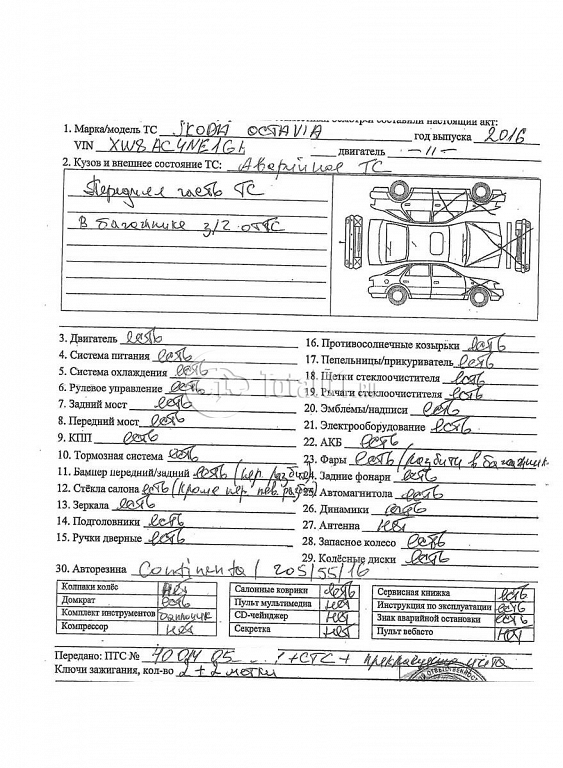 осмотри составили настоящий акт:
1. Марка/модель ТС SKODA OCTAVIA год выпуска 2016
VIN XW8AC4NE1GH двигатель -//-
2. Кузов и внешнее состояние ТС: Аварийное ТС
Передняя часть ТС
В багажнике з/ч от ТС
3. Двигатель есть
4. Система питания есть
5. Система охлаждения есть
6. Рулевое управление есть
7. Задний мост есть
8. Передний мост есть
9. КПП есть
10. Тормозная система есть
11. Бампер передний/задний есть (пер. разбит)
12. Стёкла салона есть (кроме пер. лев. разб)
13. Зеркала есть
14. Подголовники есть
15. Ручки дверные есть
16. Противосолнечные козырьки есть
17. Пепельницы/прикуриватель есть
18. Щетки стеклоочистителя есть
19. Рычаги стеклоочистителя есть
20. Эмблёмы/надписи есть
21. Электрооборудование есть
22. АКБ есть
23. Фары есть (разбиты в багажник
24. Задние фонари есть
25. Автомагнитола есть
26. Динамики есть
27. Антенна нет
28. Запасное колесо есть
29. Колёсные диски есть
30. Авторезина Continental 205/55/16
Колпаки колёс нет
Домкрат есть
Комплект инструментов баллонник
Компрессор нет
Салонные коврики есть
Пульт мультимедиа нет
CD-чейнджер нет
Секретка нет
Сервисная книжка есть
Инструкция по эксплуатации есть
Знак аварийной остановки есть
Пульт вебасто нет
Передано: ПТС № 40 + СТС +
Ключи зажигания, кол-во 2 + 2 метки
TotalBu.ru